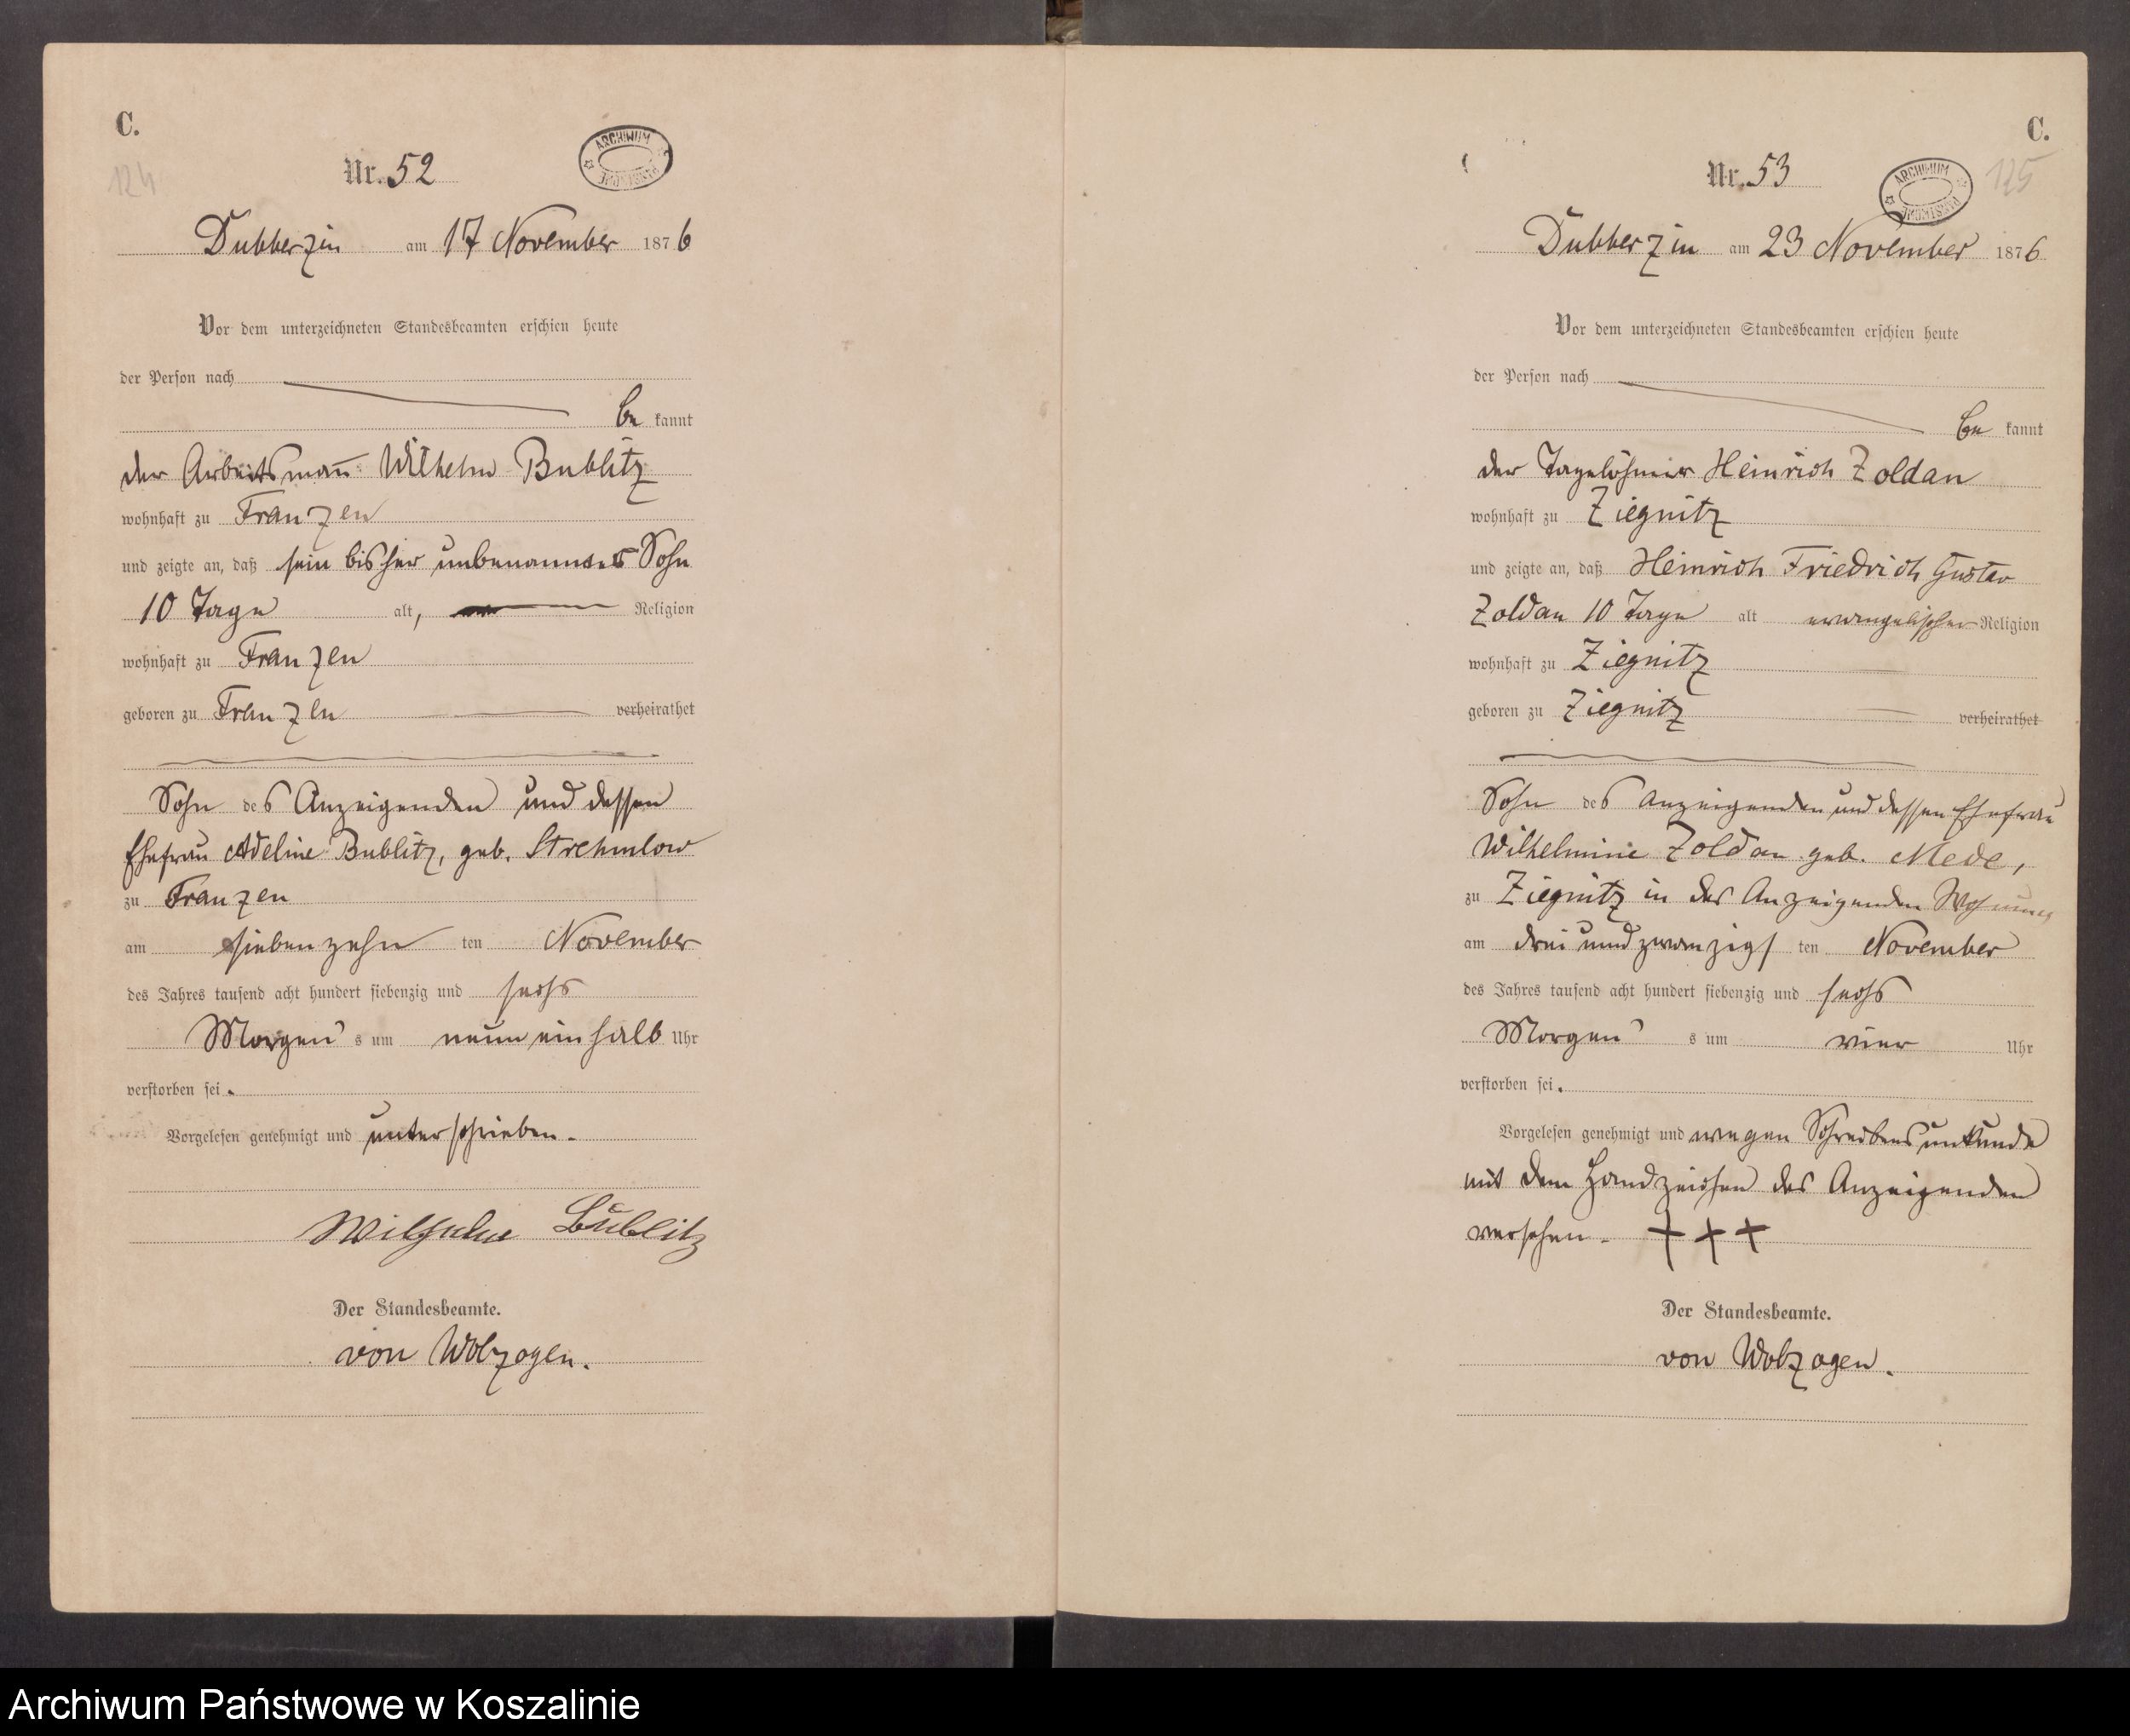 C.
124
Nr. 52
ARCHIWUM PAŃSTWOWE
Dubberzin am 17 November 1876
Vor dem unterzeichneten Standesbeamten erschien heute
der Person nach
be kannt
der Arbeitsmann Wilhelm Bublitz
wohnhaft zu Franzen
und zeigte an, daß sein bisher unbenannter Sohn
10 Tage alt, Religion
wohnhaft zu Franzen
geboren zu Franzen verheirathet
Sohn des Anzeigenden und dessen
Ehefrau Adeline Bublitz, geb. Strehmlow
zu Franzen
am siebenzehn ten November
des Jahres tausend acht hundert siebenzig und sechs
Morgens um neun ein halb Uhr
verstorben sei.
Vorgelesen genehmigt und unterschrieben.
Wilhelm Bublitz
Der Standesbeamte.
von Wolzogen.
C.
125
Nr. 53
ARCHIWUM PAŃSTWOWE
Dubberzin am 23 November 1876
Vor dem unterzeichneten Standesbeamten erschien heute
der Person nach
be kannt
der Tagelöhner Heinrich Zoldan
wohnhaft zu Ziegnitz
und zeigte an, daß Heinrich Friedrich Gustav
Zoldan 10 Tage alt evangelischer Religion
wohnhaft zu Ziegnitz
geboren zu Ziegnitz verheirathet
Sohn des Anzeigenden und dessen Ehefrau
Wilhelmine Zoldan geb. Mede,
zu Ziegnitz in des Anzeigenden Wohnung
am drei und zwanzigs ten November
des Jahres tausend acht hundert siebenzig und sechs
Morgens um vier Uhr
verstorben sei.
Vorgelesen genehmigt und wegen Schreibensunkunde
mit dem Handzeichen des Anzeigenden
versehen. + + +
Der Standesbeamte.
von Wolzogen.
Archiwum Państwowe w Koszalinie